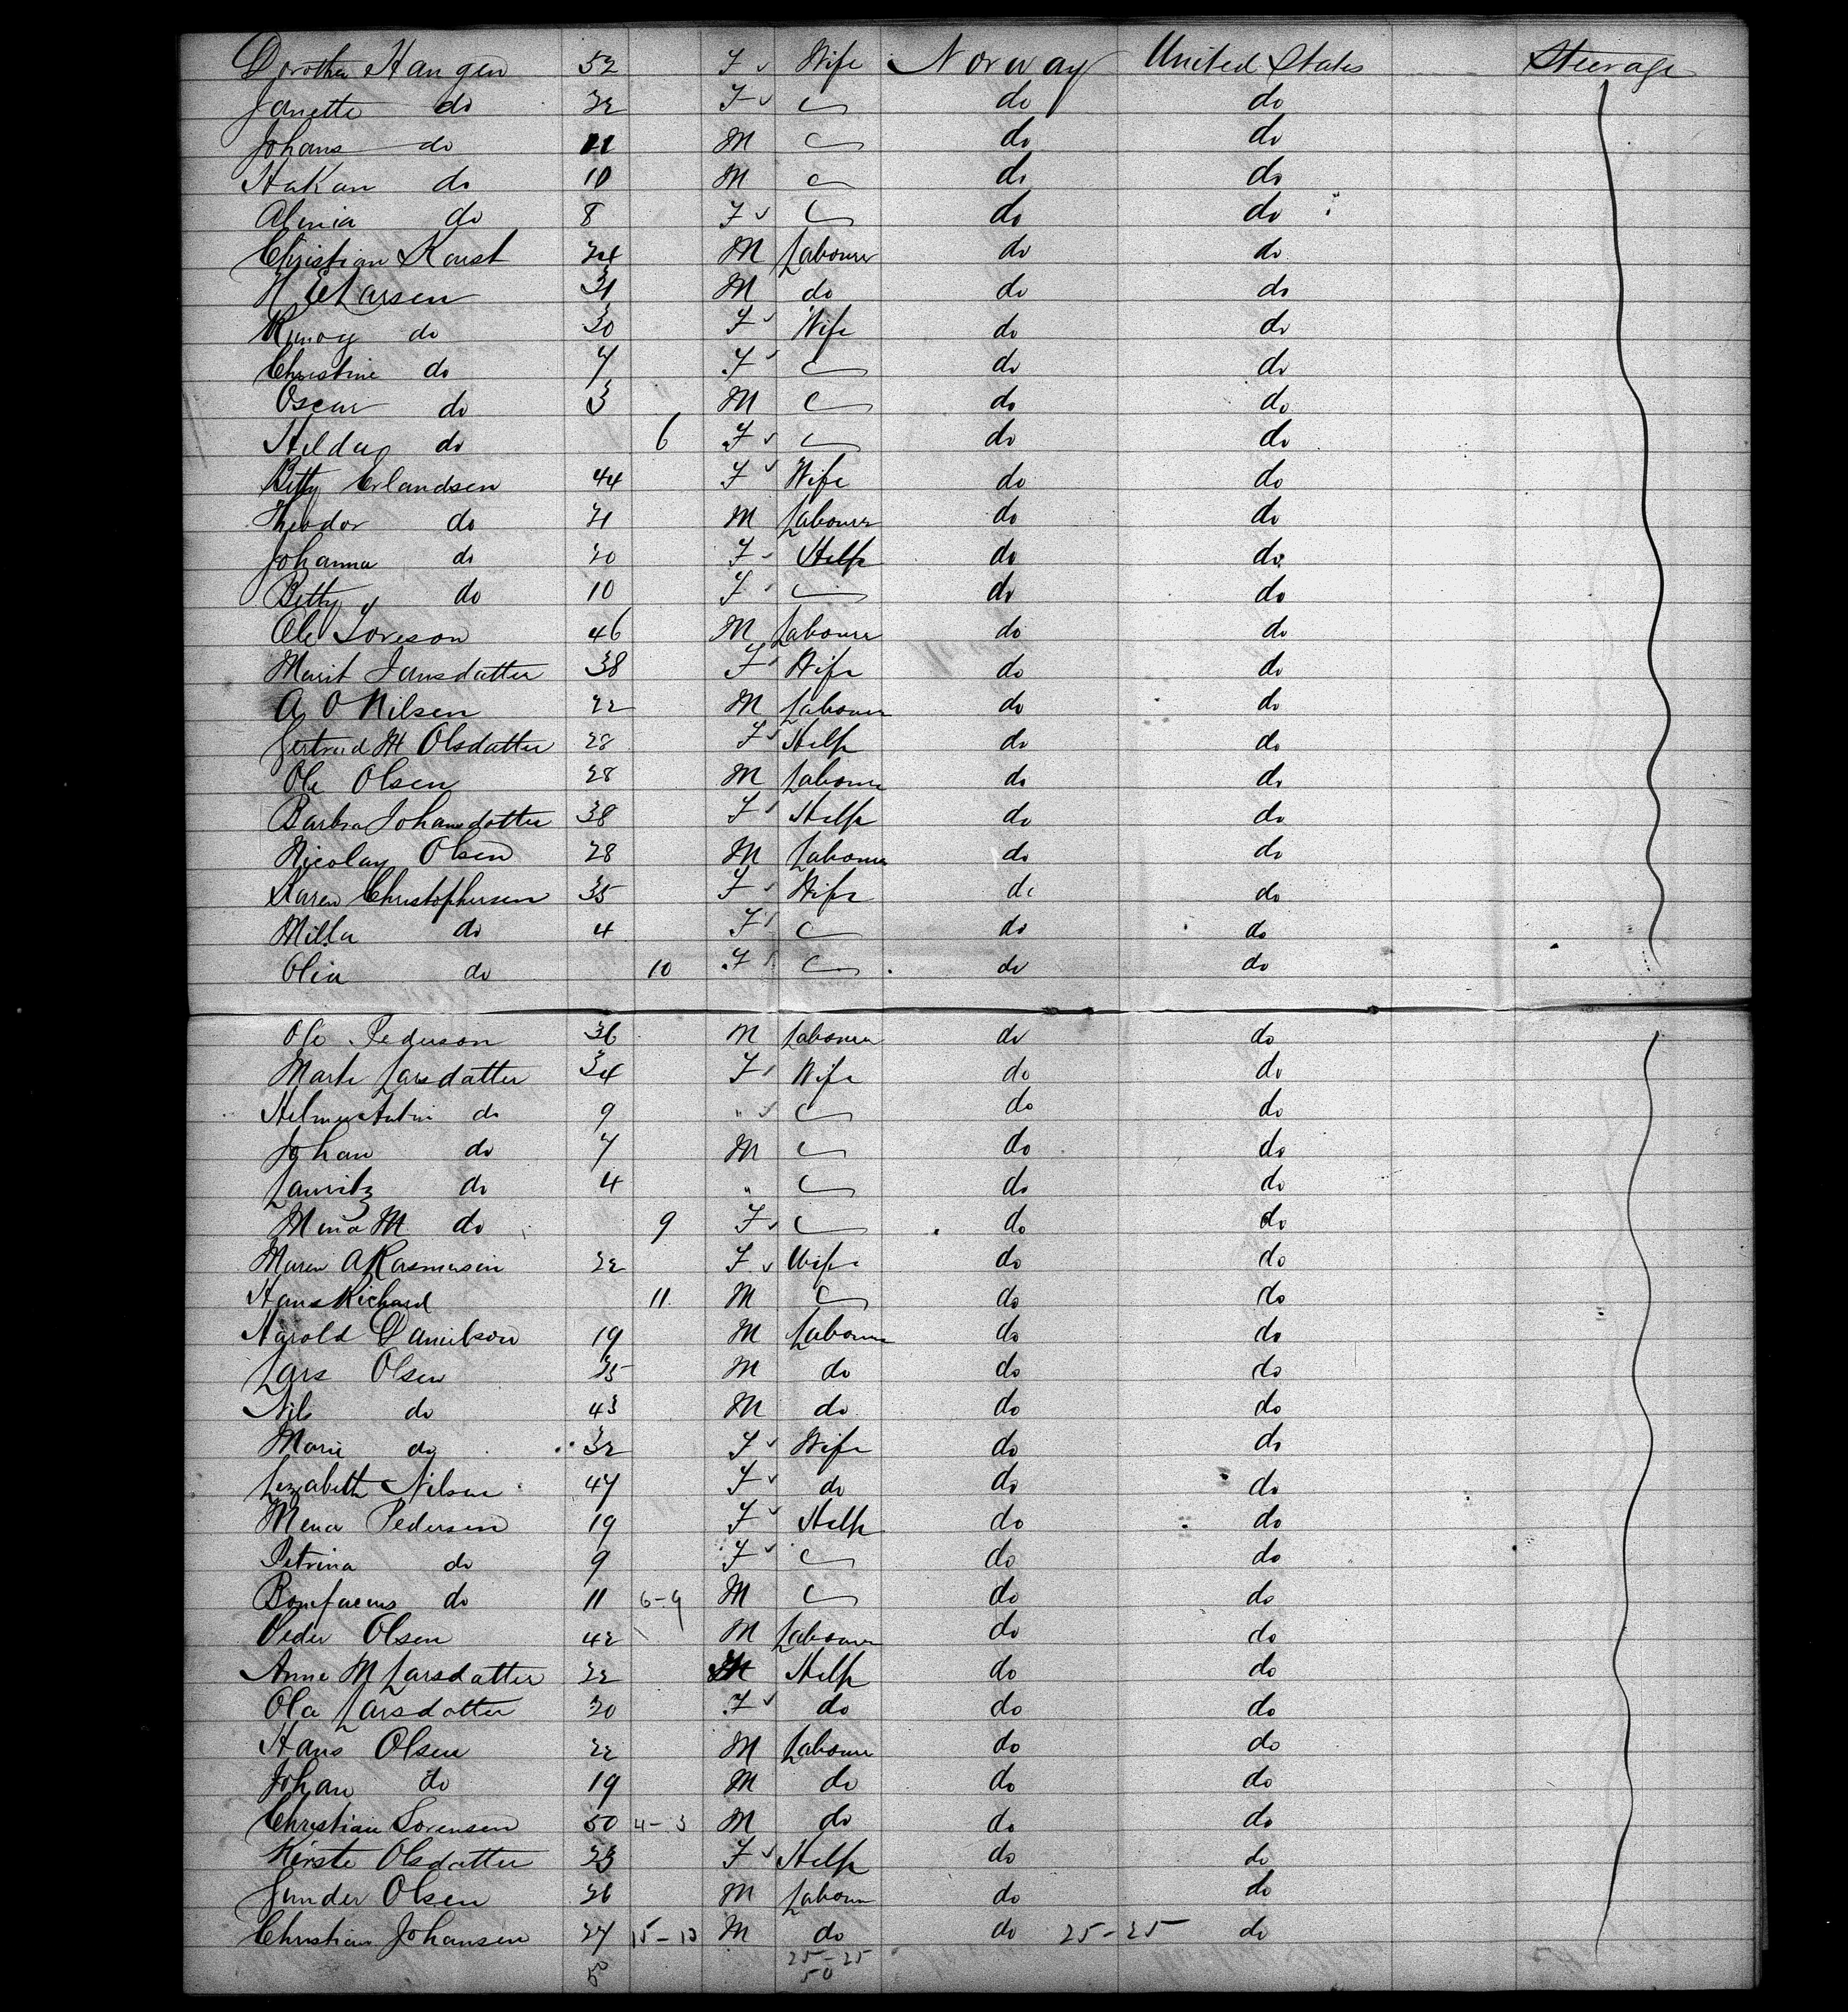 Dorothea Haugen 52 F Wife Norway United States Steerage
Janette do 22 F do do
Johans do 11 M do do
Hakan do 10 M do do
do 8 F do do
Christian Kaust 24 M Labourer do do
Larsen 31 M do do do
do 30 F Wife do do
Christine do 7 F do do
Oscar do 3 M do do
Hilda do 6 F do do
Betty Erlandsen 44 F Wife do do
Theodor do 21 M Labourer do do
Johanna do 20 F Help do do
Betty do 10 F do do
Ole 46 M Labourer do do
Marit Jansdatter 38 F Wife do do
A O Nilsen 22 M Labourer do do
Gertrud M Olsdatter 28 F Help do do
Ole Olsen 28 M Labourer do do
Barbra Johansdatter 38 F Help do do
Nicolay Olsen 28 M Labourer do do
Karen Christophersen 35 F Wife do do
Milla do 4 F do do
Olia do 10 F do do
Ole Pederson 36 M Labourer do do
Marte Larsdatter 34 F Wife do do
do 9 " do do
Johan do 7 M do do
Lauritz do 4 " do do
Mina M do 9 F do do
Maren A Rasmusen 22 F Wife do do
Hans Richard 11 M do do
Harold Danielson 19 M Labourer do do
Lars Olsen 35 M do do do
Nils do 43 M do do do
Marie do 32 F Wife do do
Lezabeth Nilsen 47 F do do do
Mena Pedersen 19 F Help do do
Petrina do 9 F do do
Bonefacius do 11 6-9 M do do
Peder Olsen 42 M Labourer do do
Anne M Larsdatter 22 Help do do
Ola Larsdatter 20 F do do do
Hans Olsen 22 M Labourer do do
Johan do 19 M do do do
Christian Sorensen 50 4-3 M do do do
Kirste Olsdatter 23 F Help do do
Gunder Olsen 26 M Labourer do do
Christian Johansen 27 15-12 M do do 25-25 do
50 25-25
50